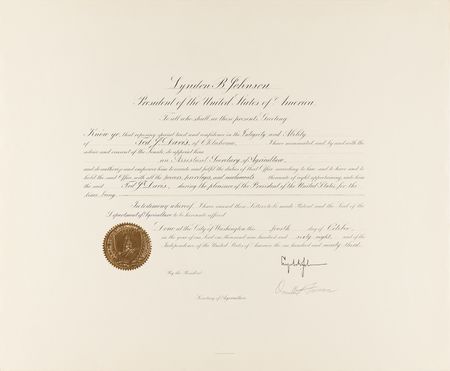 Lyndon B. Johnson
President of the United States of America.
To all who shall see these presents, Greeting:
Know ye, that reposing special trust and confidence in the Integrity and Ability
of Ted J. Davis, of Oklahoma, I have nominated and, by and with the
advice and consent of the Senate, do appoint him
an Assistant Secretary of Agriculture,
and do authorize and empower him to execute and fulfil the duties of that Office according to law, and to have and to
hold the said Office, with all the powers, privileges, and emoluments thereunto of right appertaining, unto him
the said Ted J. Davis, during the pleasure of the President of the United States for the
time being.
In testimony whereof, I have caused these Letters to be made Patent and the Seal of the
Department of Agriculture to be hereunto affixed.
Done at the City of Washington this fourth day of October,
in the year of our Lord one thousand nine hundred and sixty-eight, and of the
Independence of the United States of America the one hundred and ninety-third.
By the President:
Secretary of Agriculture.